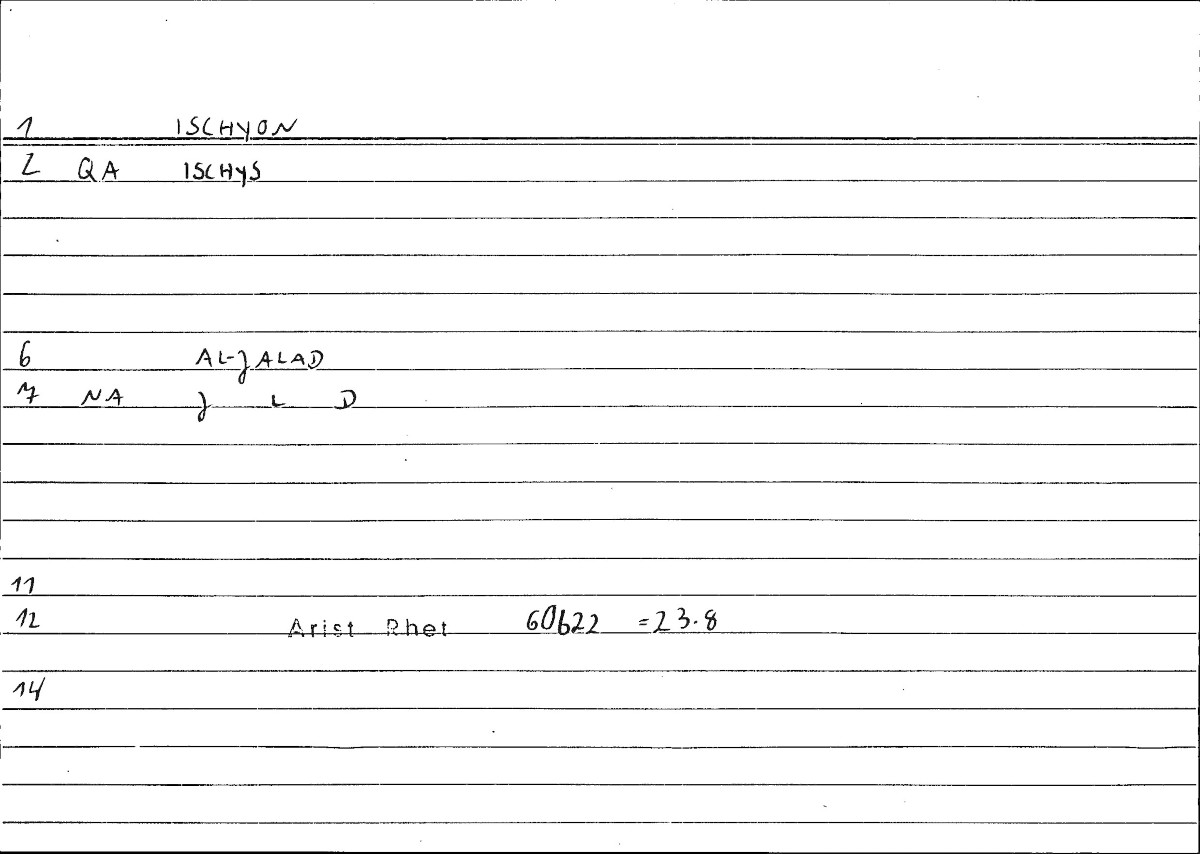 1 ISCHYON
2 QA ISCHYS
6 AL-JALAD
7 NA J L D
11
12 Arist Rhet 60b22 =23.8
14